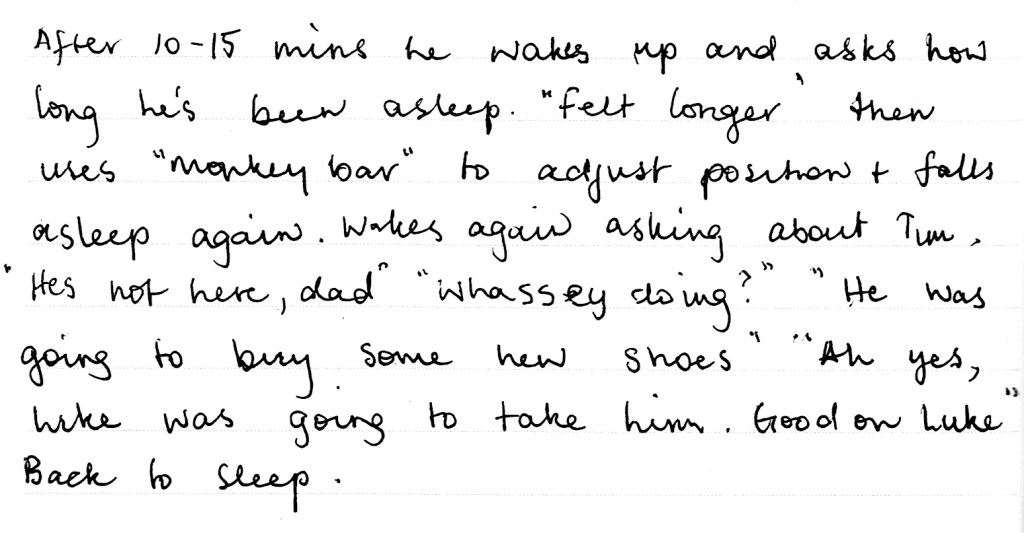 After 10-15 mins he wakes up and asks how
long he's been asleep. "felt longer' then
uses "monkey bar" to adjust position + falls
asleep again. Wakes again asking about Tim.
"Hes not here, dad" "whassey doing?" "He was
going to buy some new shoes" "Ah yes,
Luke was going to take him. Good on Luke"
Back to sleep.